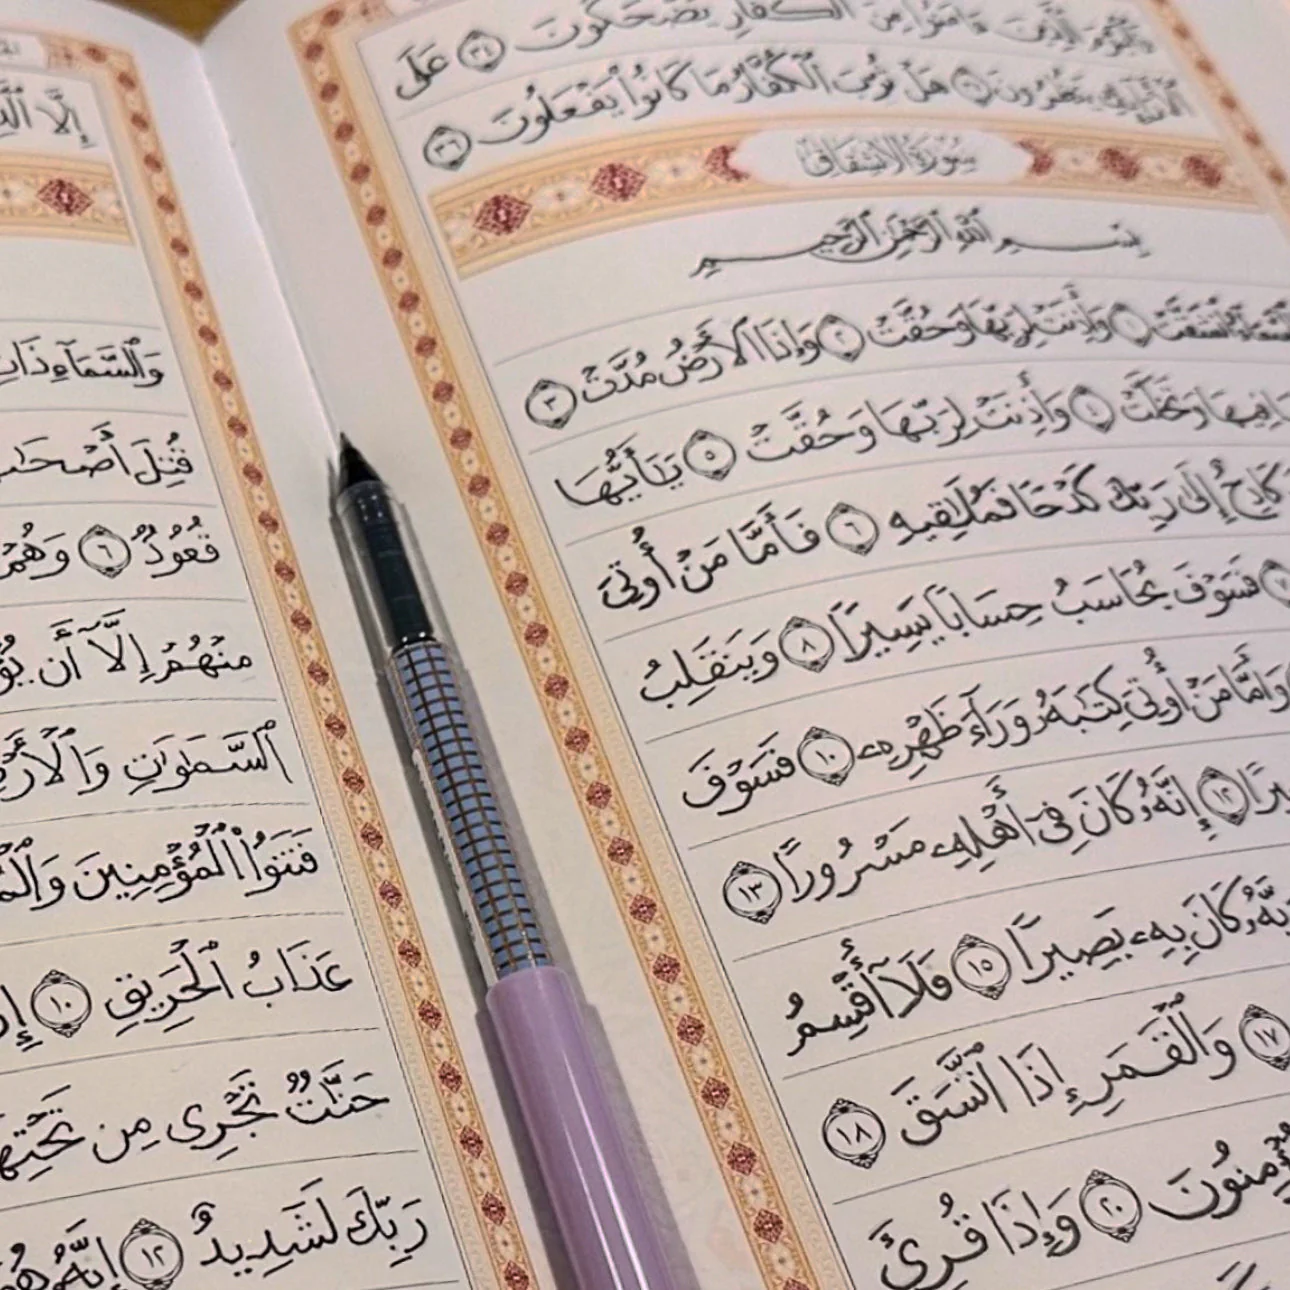 فَالْيَوْمَ الَّذِينَ ءَامَنُوا مِنَ الْكُفَّارِ يَضْحَكُونَ ٣٤ عَلَى
الْأَرَائِكِ يَنظُرُونَ ٣٥ هَلْ ثُوِّبَ الْكُفَّارُ مَا كَانُوا يَفْعَلُونَ ٣٦
سُورَةُ الانْشِقَاقِ
بِسْمِ اللَّهِ الرَّحْمَٰنِ الرَّحِيمِ
السَّمَاءُ انشَقَّتْ ١ وَأَذِنَتْ لِرَبِّهَا وَحُقَّتْ ٢ وَإِذَا الْأَرْضُ مُدَّتْ ٣
مَا فِيهَا وَتَخَلَّتْ ٤ وَأَذِنَتْ لِرَبِّهَا وَحُقَّتْ ٥ يَٰأَيُّهَا
كَادِحٌ إِلَىٰ رَبِّكَ كَدْحًا فَمُلَٰقِيهِ ٦ فَأَمَّا مَنْ أُوتِيَ
٧ فَسَوْفَ يُحَاسَبُ حِسَابًا يَسِيرًا ٨ وَيَنقَلِبُ
وَأَمَّا مَنْ أُوتِيَ كِتَٰبَهُ وَرَاءَ ظَهْرِهِ ١٠ فَسَوْفَ
١٢ إِنَّهُ كَانَ فِي أَهْلِهِ مَسْرُورًا ١٣
كَانَ بِهِ بَصِيرًا ١٥ فَلَا أُقْسِمُ
١٧ وَالْقَمَرِ إِذَا اتَّسَقَ ١٨
٢٠ وَإِذَا قُرِئَ
إِلَّا الَّ
وَالسَّمَاءِ ذَاتِ
قُتِلَ أَصْحَٰبُ
قُعُودٌ ٦ وَهُمْ
مِنْهُمْ إِلَّا أَن
السَّمَٰوَٰتِ وَالْأَرْضِ
فَتَنُوا الْمُؤْمِنِينَ
عَذَابُ الْحَرِيقِ ١٠
جَنَّٰتٌ تَجْرِي مِن تَحْتِهَا
رَبِّكَ لَشَدِيدٌ ١٢ إِنَّهُ هُوَ